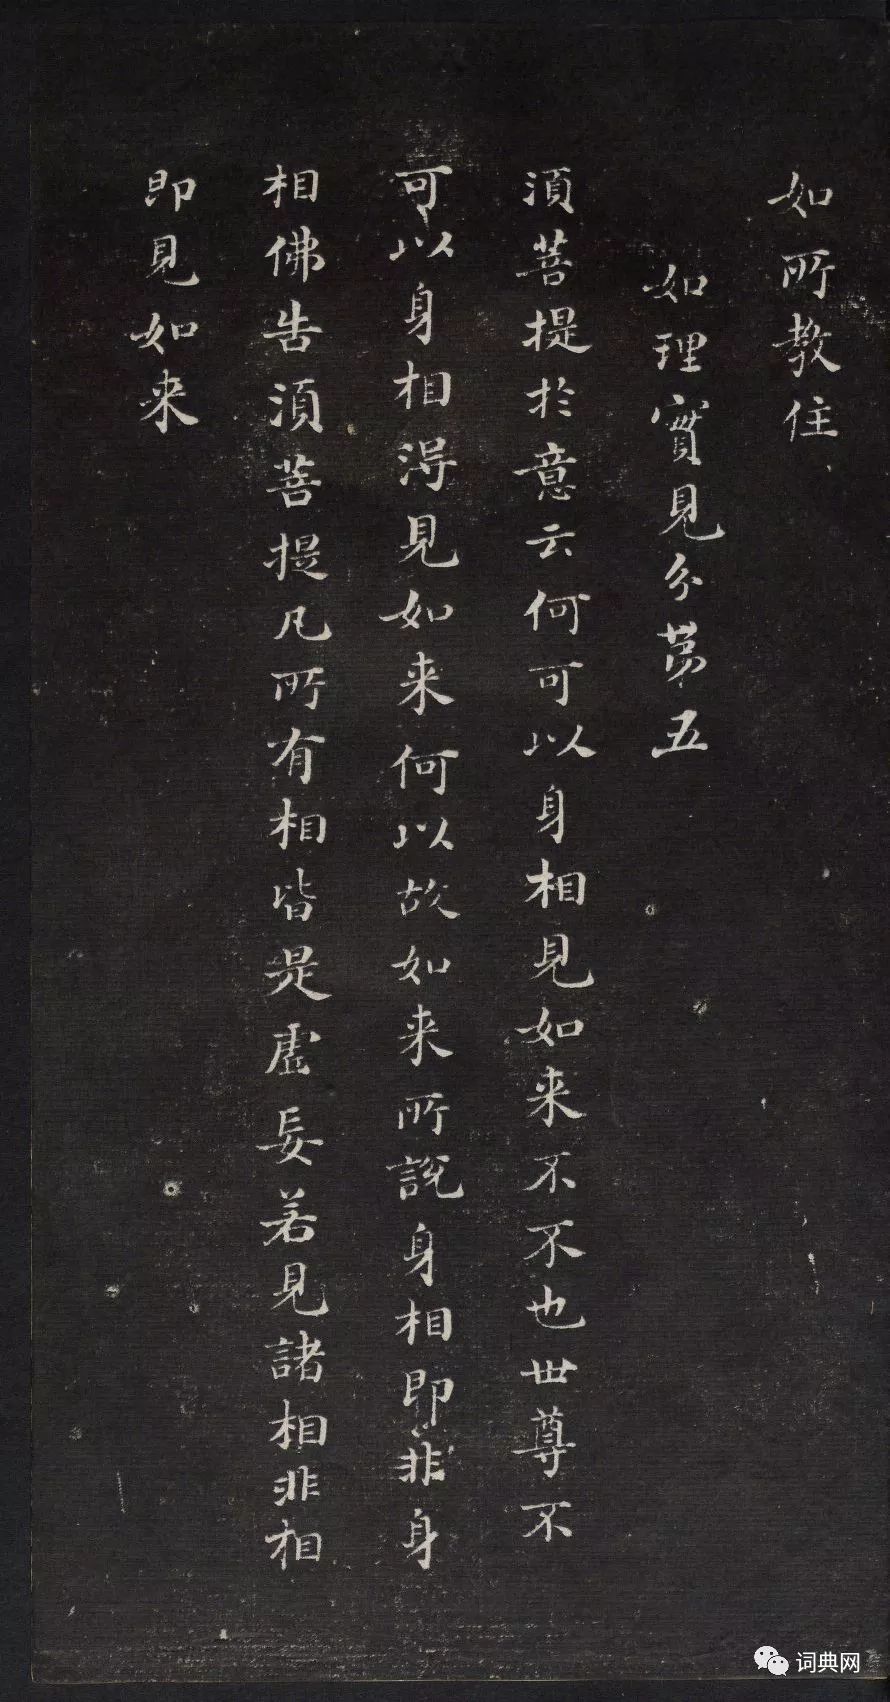 如所教住
如理實見分第五
須菩提於意云何可以身相見如来不不也世尊不
可以身相得見如来何以故如来所說身相即非身
相佛告須菩提凡所有相皆是虛妄若見諸相非相
即見如来
词典网